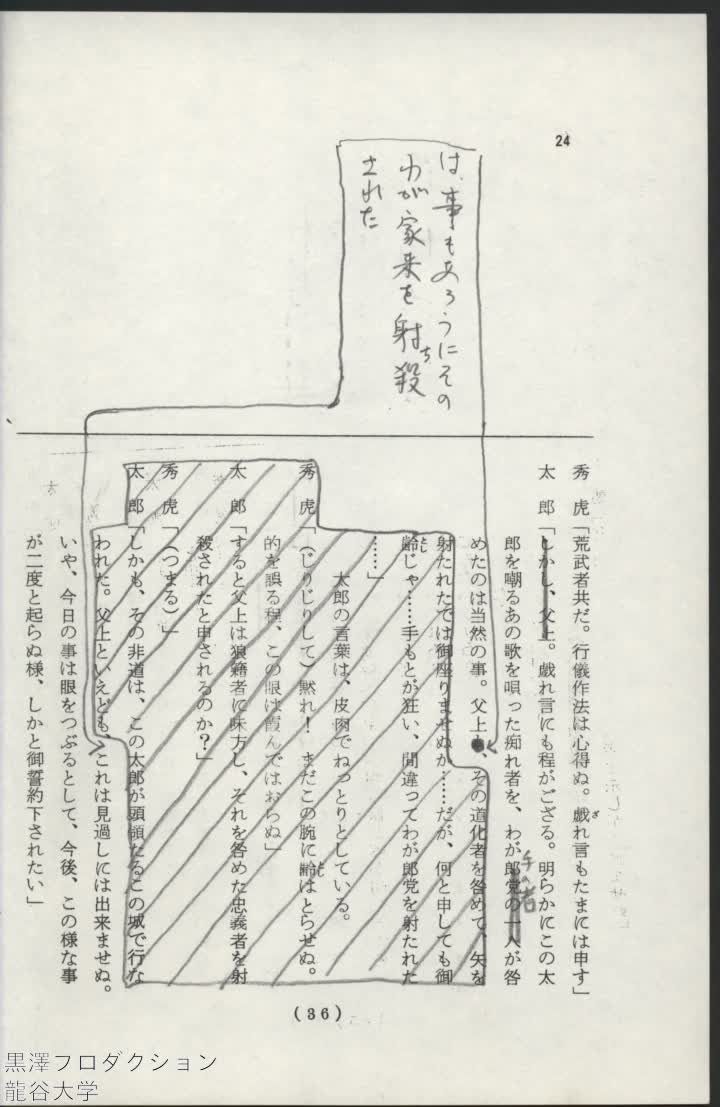 24
は、事もあろうにその
わが家来を射殺
ち
された
秀虎「荒武者共だ。行儀作法は心得ぬ。戯れ言もたまには申す」
ざ
太郎「しかし、父上。戯れ言にも程がござる。明らかにこの太
郎を嘲るあの歌を唄った痴れ者を、わが郎党の一人が咎
手の者
めたのは当然の事。父上も、その道化者を咎めて、矢を
射たれたでは御座りませぬか……だが、何と申しても御
齢じゃ……手もとが狂い、間違ってわが郎党を射たれた
とし
……」
太郎の言葉は、皮肉でねっとりとしている。
秀虎「(じりじりして)黙れ!まだこの腕に齢はとらせぬ。
とし
的を誤る程、この眼は霞んではおらぬ」
太郎「すると父上は狼籍者に味方し、それを咎めた忠義者を射
殺されたと申されるのか?」
秀虎「(つまる)」
太郎「しかも、その非道は、この太郎が頭領たるこの城で行な
われた。父上といえども、これは見過しには出来ませぬ。
いや、今日の事は眼をつぶるとして、今後、この様な事
が二度と起らぬ様、しかと御誓約下されたい」
(36)
黒澤プロダクション
龍谷大学